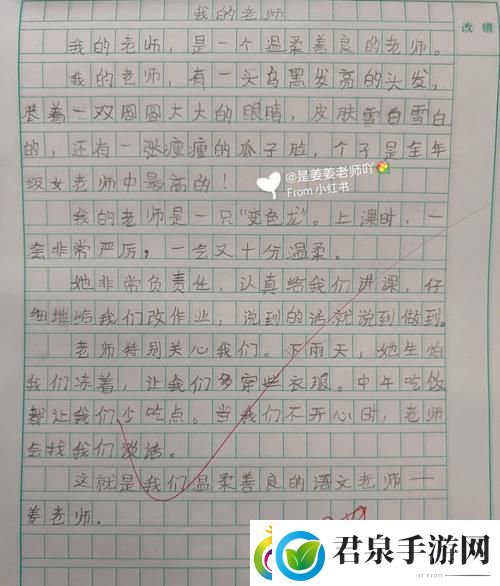 我的老师
改错
我的老师，是一个温柔善良的老师。
我的老师，有一头乌黑发亮的头发，
长着一双圆圆大大的眼睛，皮肤雪白雪白
的，还有一张瘦瘦的瓜子脸，个子是全年
级女老师中最高的！
@是姜姜老师吖
From 小红书
我的老师是一只“变色龙”。上课时，一
会非常严厉，一会又十分温柔。
她非常负责任，认真给我们讲课，仔
细地给我们改作业，说到的话就说到做到。
老师特别关心我们。下雨天，她生怕
我们冻着，让我们多穿些衣服。中午吃饭
都让我们少吃点。当我们不开心时，老师
会找我们谈话。
这就是我们温柔善良的语文老师一
姜老师。
君泉手游网